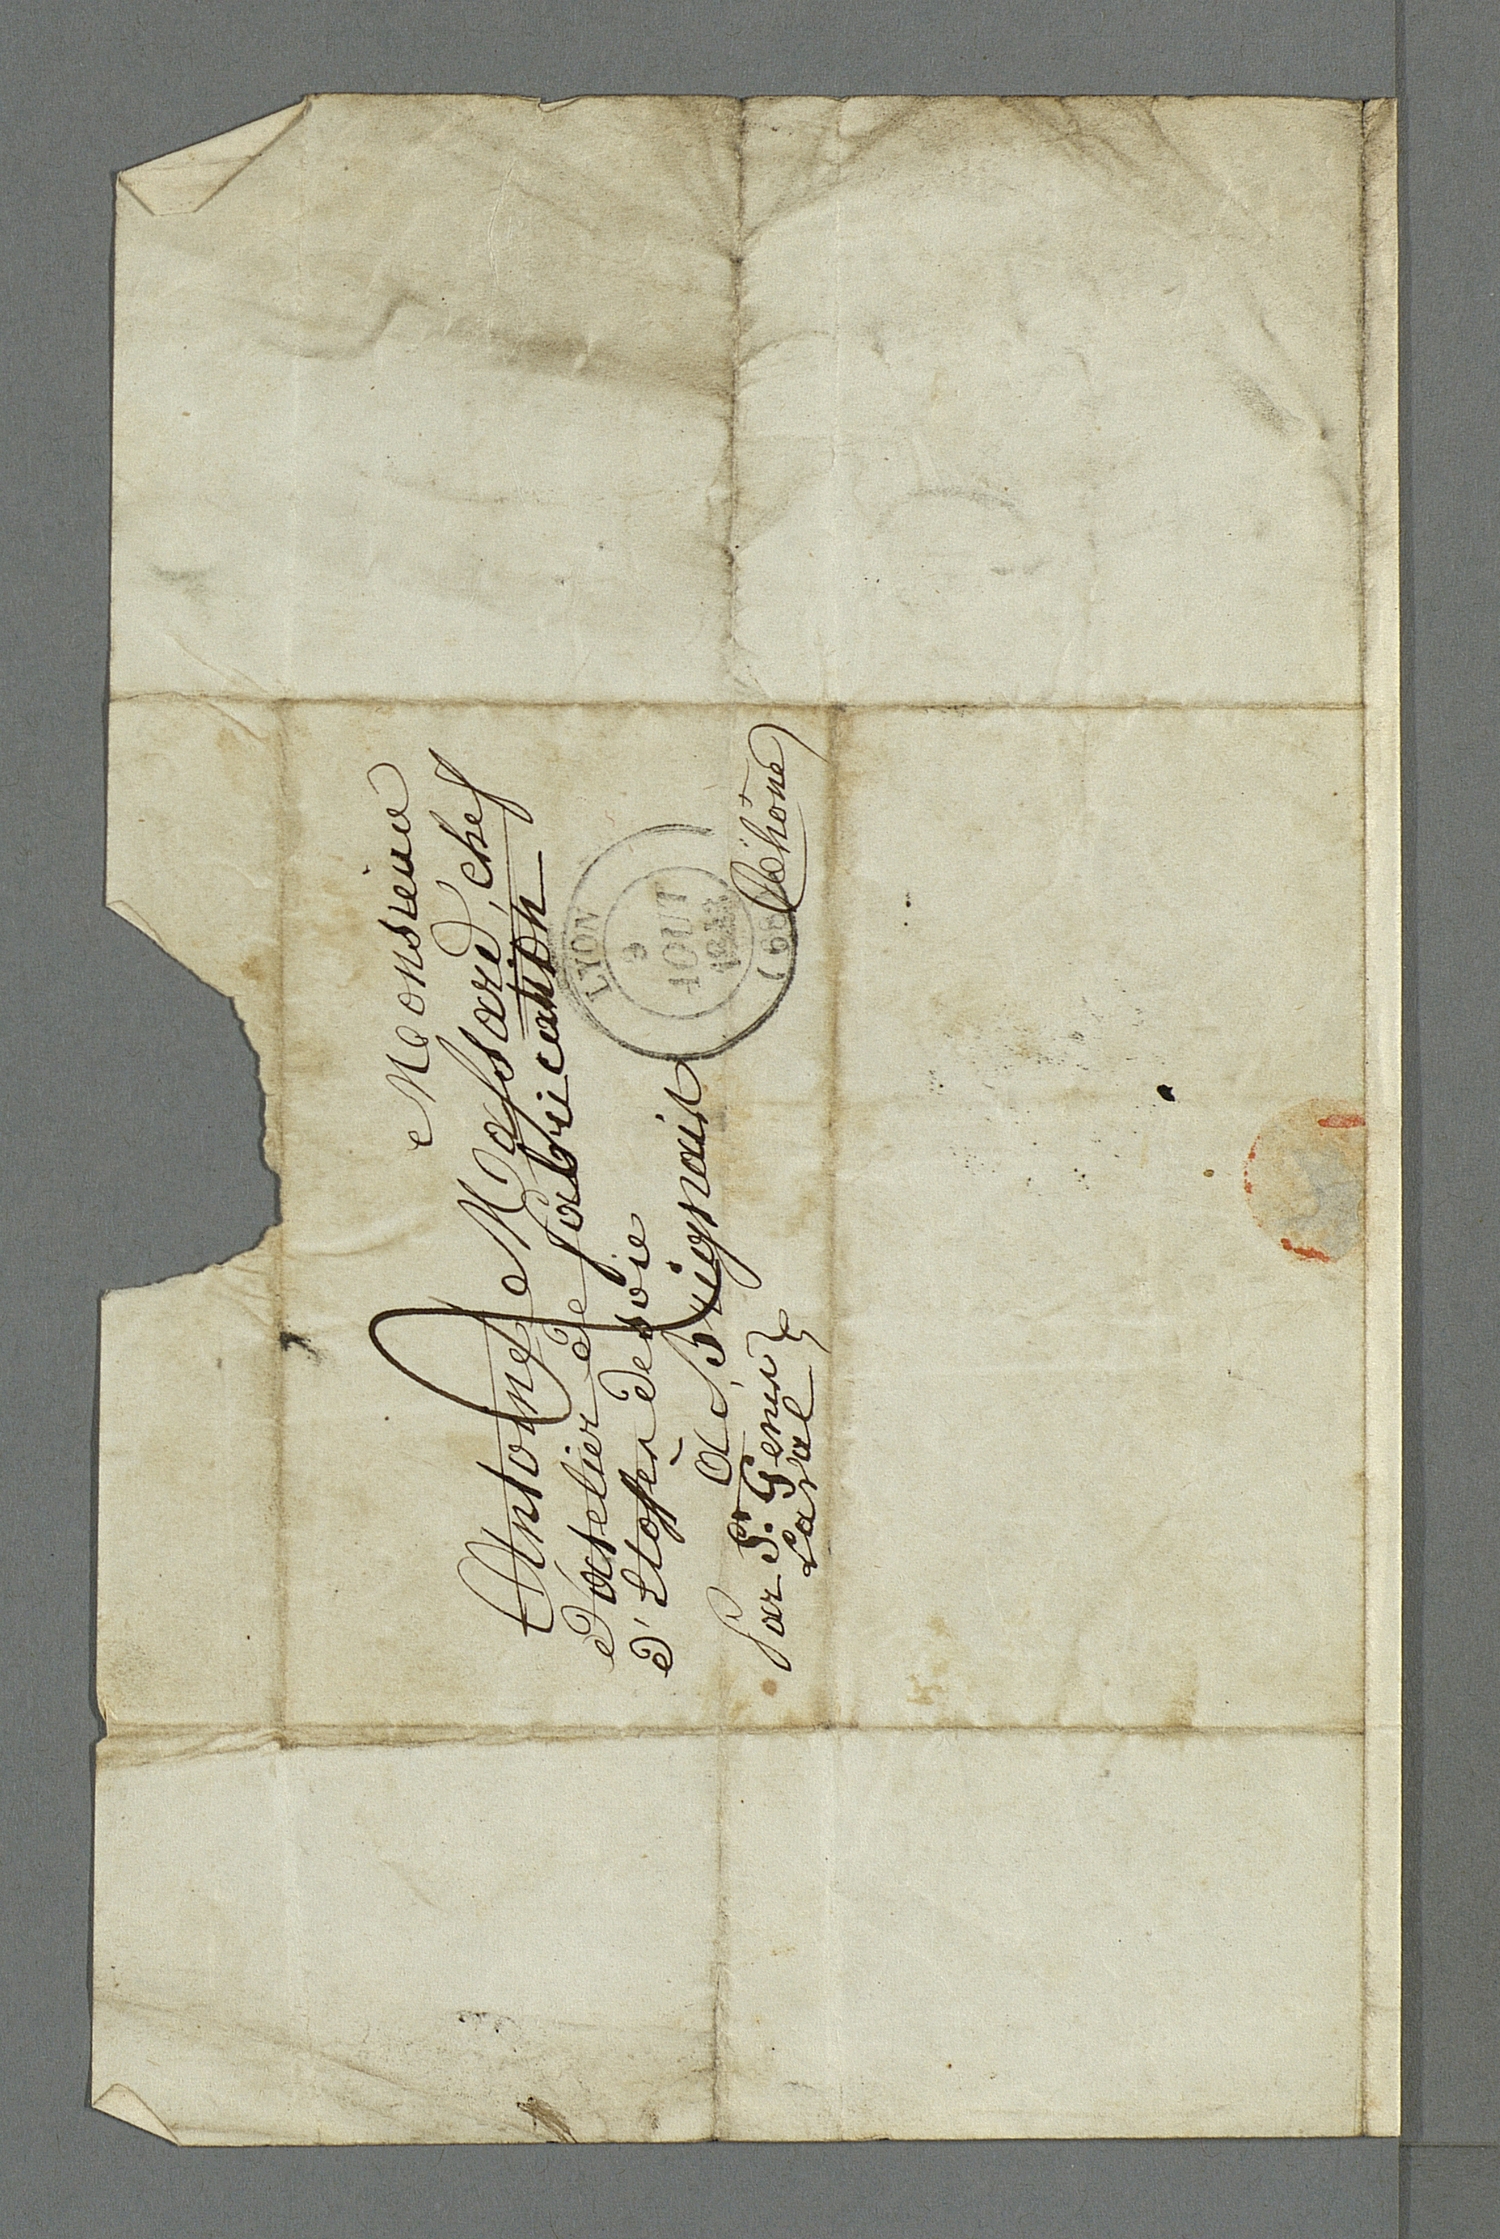 Monsieur
Antoine Massard, chef
d'atelier de fabrication
d'étofes de soie
à Brignais
Par St. Genis
Laval
Rhône
LYON
9
AOUT
(68)